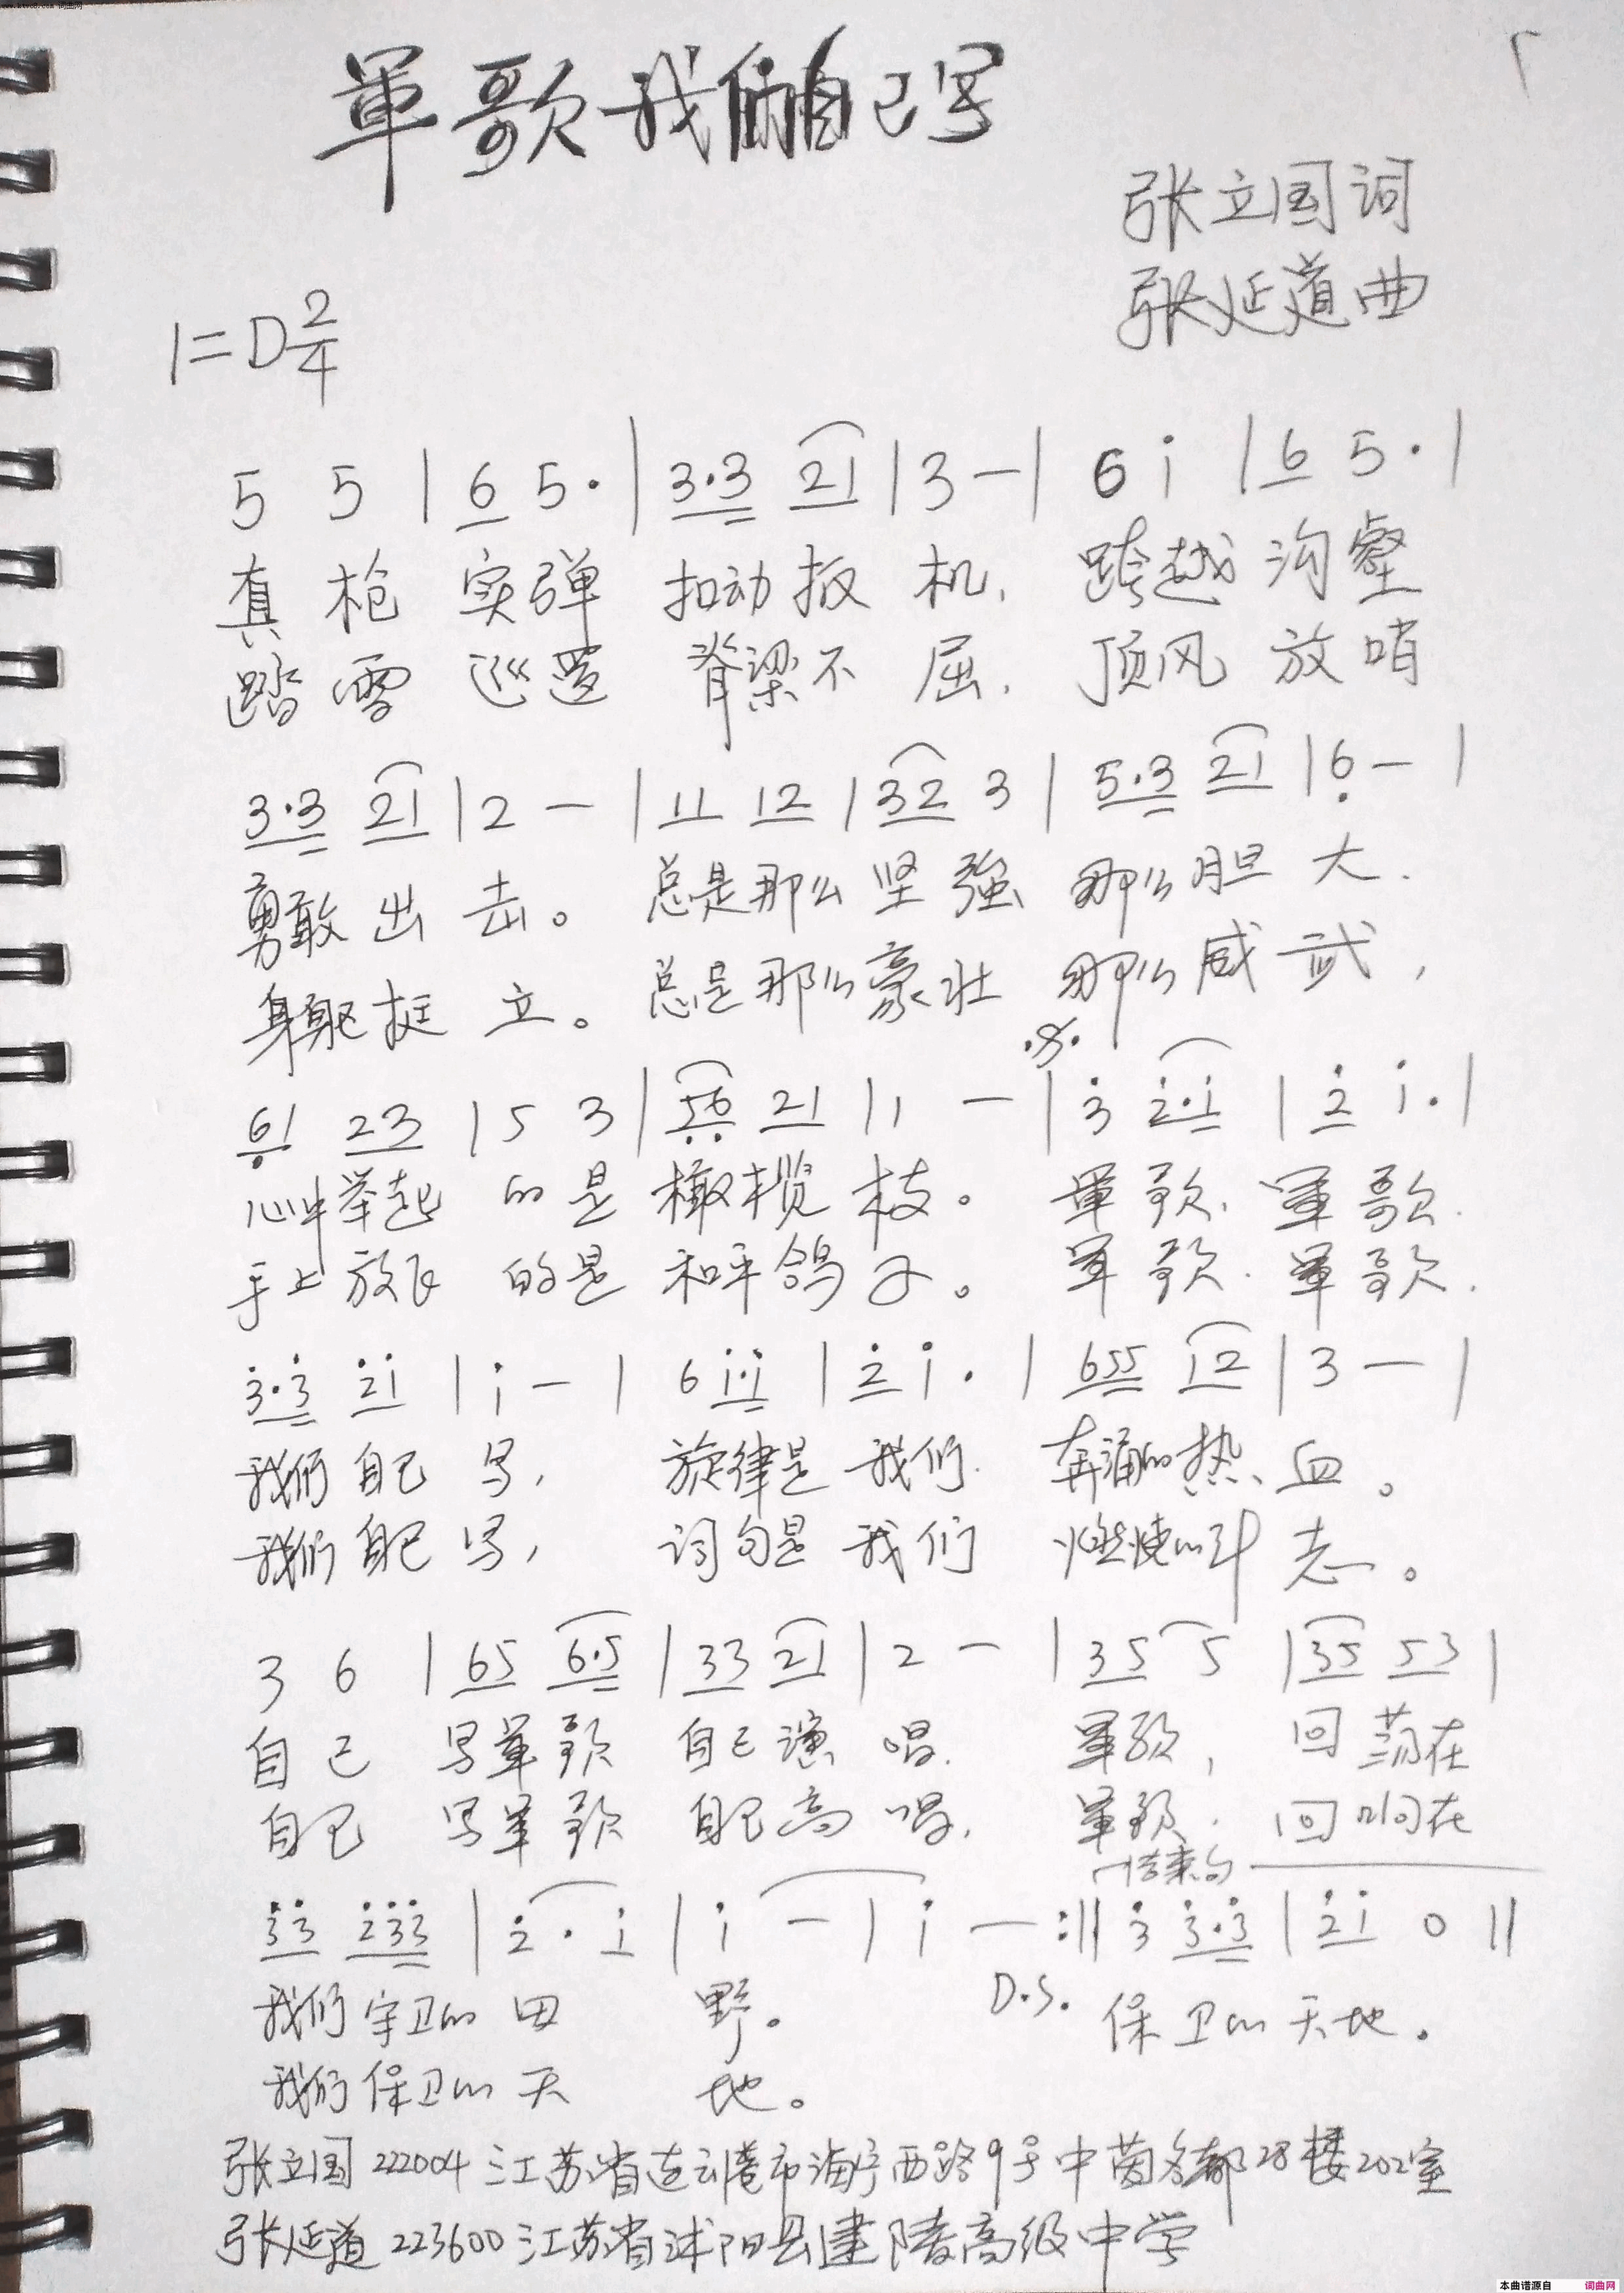 軍歌我们自己写
张立国词
张延道曲
1=D 2/4
5 5 | 6 5· | 3·3 21 | 3 — | 6 i | 6 5· |
真 枪 实弹 扣动扳 机, 跨越 沟壑
踏 雪 巡逻 脊梁不 屈, 顶风 放哨
3·3 21 | 2 — | 11 12 | 32 3 | 5·3 21 | 6̣ — |
勇敢 出 击。 总是那么 坚 强 那么胆 大,
身躯挺 立。 总是那么豪壮 那么威 武,
6̣1 23 | 5 3 | 5̣6̣ 21 | 1 — | 3̇ 2̇·i | 2̇ i· |
心中举起 的是 橄榄 枝。 軍 歌, 軍 歌,
手上放飞 的是 和平鸽 子。 軍 歌, 軍 歌,
3̇·3̇ 2̇i | i — | 6 i·i | 2̇ i· | 655 12 | 3 — |
我们 自己 写, 旋律是 我们 奔涌的热 血。
我们 自己 写, 词句是 我们 燃烧的斗 志。
3 6 | 65 6·5 | 33 21 | 2 — | 35 5 | 35 53 |
自己 写軍歌 自己演 唱, 軍歌, 回荡在
自己 写軍歌 自己高 唱, 軍歌, 回响在
结束句
3̇3̇ 2̇3̇3̇ | 2̇·i | i — | i — :‖ 3̇ 3̇·3̇ | 2̇i 0 ‖
我们守卫的 田 野。 D.S. 保卫的天地。
我们保卫的 天 地。
张立国 222004 江苏省连云港市海宁西路9号中茵名都28楼202室
张延道 223600 江苏省沭阳县建陵高级中学
本曲谱源自 词曲网